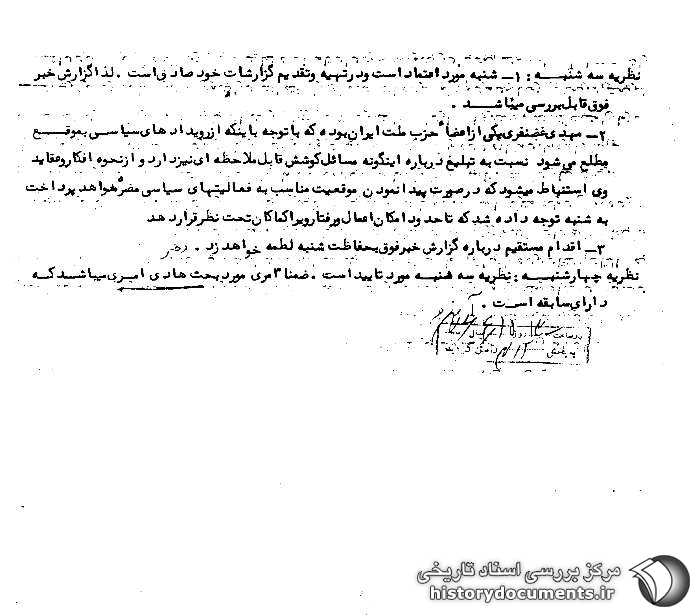 نظریه سه شنبه : ۱ـ شنبه مورد اعتماد است ودرتهیه وتقدیم گزارشات خود صادق است . لذاگزارش خبر
فوق قابل بررسی میباشد .
۲ـ مهدی غضنفری یکی از اعضاء حزب ملت ایران بوده که با توجه باینکه ازرویدادهای سیاسی بموقع
مطلع می شود نسبت به تبلیغ درباره اینگونه مسائل کوشش قابل ملاحظه ای نیزدارد و ازنحوه افکاروعقاید
وی استنباط میشود که درصورت پیدانمودن موقعیت مناسب به فعالیتهای سیاسی مضرّخواهد پرداخت
به شنبه توجه داده شد که تاحدود امکان اعمال ورفتارویراکماکان تحت نظرقرارد هد
۳ـ اقدام مستقیم درباره گزارش خبرفوق بحفاظت شنبه لطمه خواهد زد .
نظریه چهارشنبه : نظریه سه شنبه مورد تاییداست . ضمنا امری مورد بحث هادی امری میباشد که
دارای سابقه است .
مرکز بررسی اسناد تاریخی
historydocuments.ir